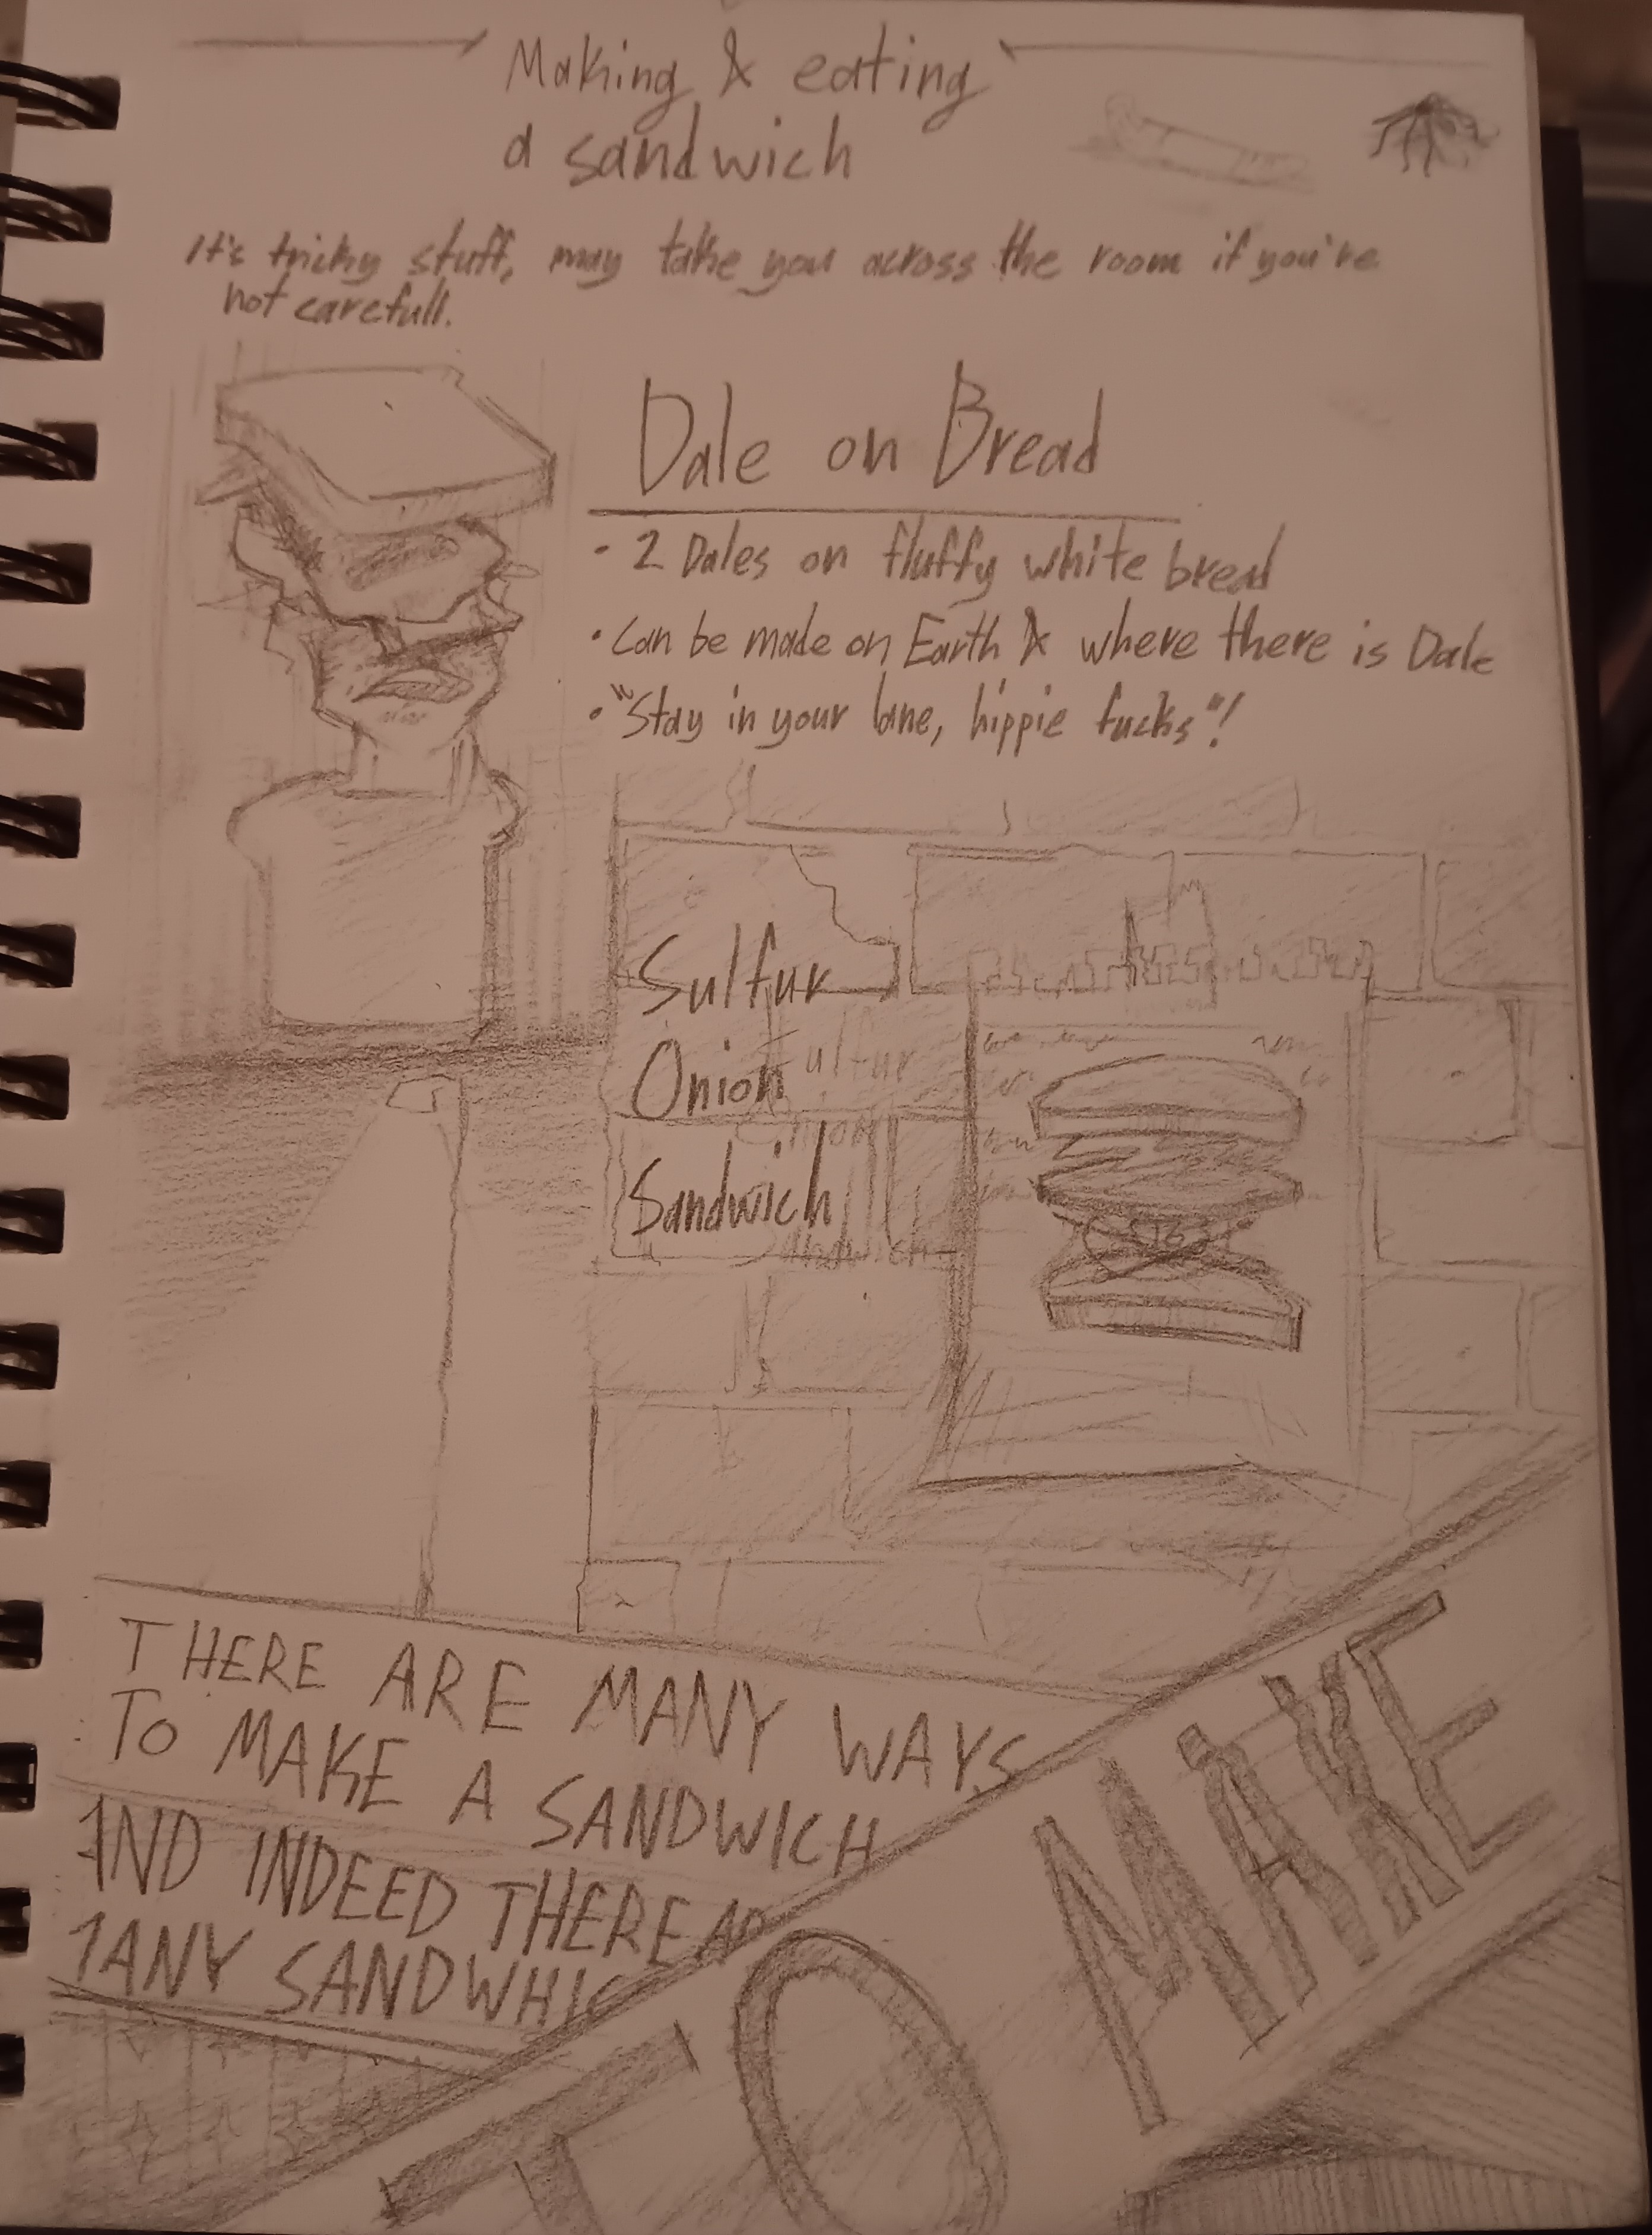 Making & eating
a sandwich
It's tricky stuff, may take you across the room if you're
not carefull.
Dale on Bread
- 2 Dales on fluffy white bread
• Can be made on Earth & where there is Dale
• "Stay in your lane, hippie fucks"!
Sulfur
Onion
Sandwich
Sulfur
Onion
Sandwich
THERE ARE MANY WAYS
TO MAKE A SANDWICH
AND INDEED THERE AR
MANY SANDWHIC
TO MAKE